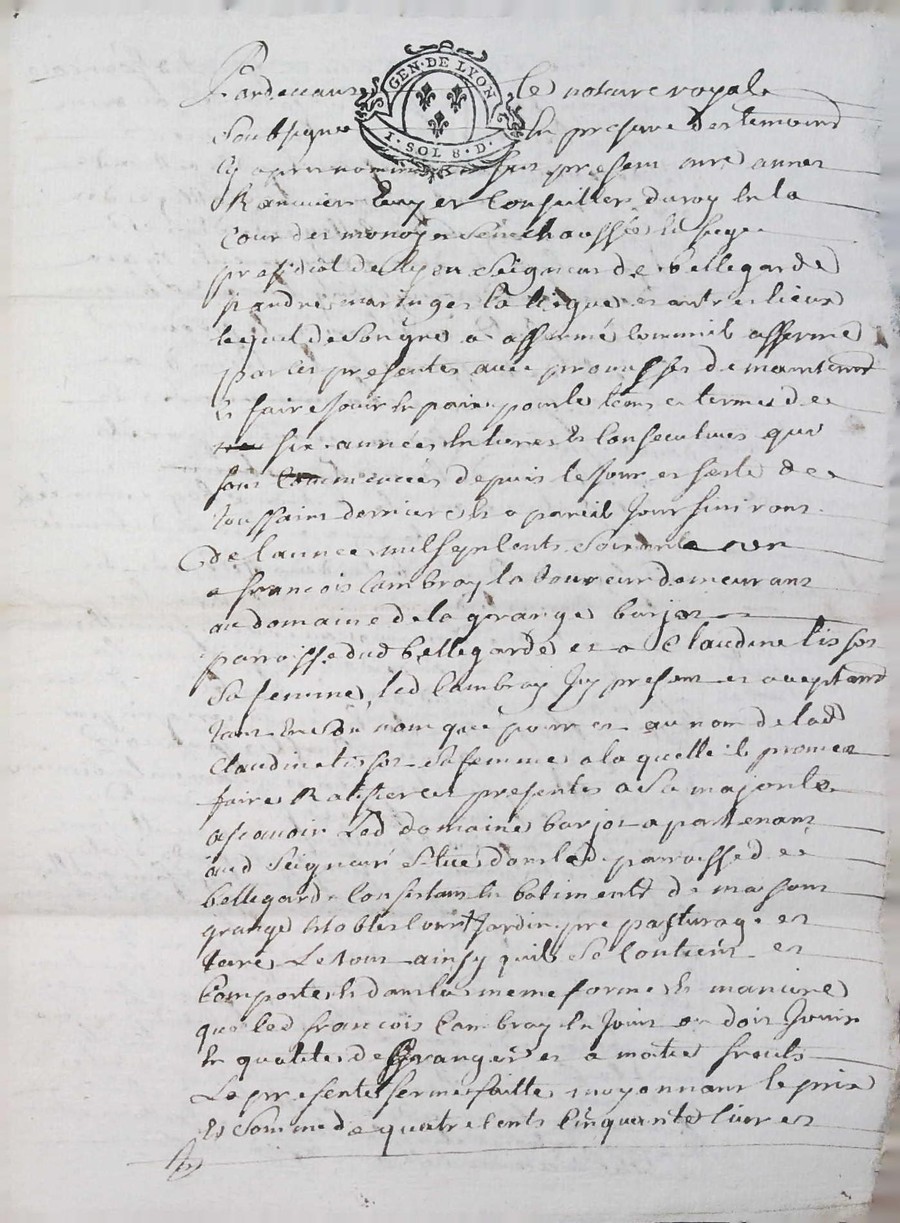 GEN·DE LYON
1·SOL 8·D·
Pardevant le notaire royal
Soubsigné En presence des temoins
Cy apres nommés fut present mre annet
Ranvier Ecuyer Conseiller du roy En la
Cour des monoyes Senechaussée Et siege
presidial de lyon Seigneur de bellegarde
st andré maringes et autres lieux
lequel de Son gré a affermé comme il afferme
par Ces presentes avec promesses de maintenir
Et faire jouir En paix pour le tems et termes de
six années Entieres Et Consecutives qui
sont Commencées depuis le jour et feste de
toussaint derniere Et a pareil jour finiront
de l'année mil sept Cents Soixante
a françois Cambray laboureur demeurant
au domaine de la grange barjot
parroisse dud bellegarde et a Claudine tissot
Sa femme, led Cambray Icy present et acceptant
tant En Son nom que pour et au nom de lad
Claudine tissot Sa femme a la quelle il promet
faire Ratifier Ces presentes a Sa majorité
ascavoir Led domaine barjot apartenant
aud Seigneur Situé dans lad parroisse de
bellegarde Consistant En batiments de maison
grange Etables Cour jardin pre pasturage et
terre Le tout ainsy quil Se Contient et
Comporte Et dans la meme forme Et maniere
que led françois Cambray En jouit ou doit jouir
En qualité de Granger et a moitié fruits
La presente ferme faitte moyennant le prix
Et Somme de quatre Cents Cinquante livres